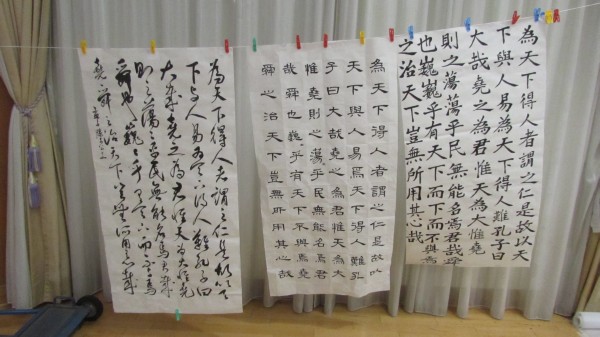 為天下得人者謂之仁是故以天
下與人易為天下得人難孔子曰
大哉堯之為君惟天為大惟堯
則之蕩蕩乎民無能名焉君哉舜
也巍巍乎有天下而不與焉
之治天下豈無所用其心哉
為天下得人者謂之仁是故以
天下與人易焉天下得人難孔
子曰大哉堯之為君惟天為大
惟堯則之蕩々乎民無能名焉君
哉舜也巍々乎有天下不與焉堯
舜之治天下豈無所用其心哉
為天下得人者謂之仁是故以天
下与人易為天下得人難孔子曰
大哉堯之為君惟天為大惟堯
則之蕩々乎民無能名焉君哉
舜也巍々乎有天下而不與焉
堯舜之治天下豈無所用其心哉